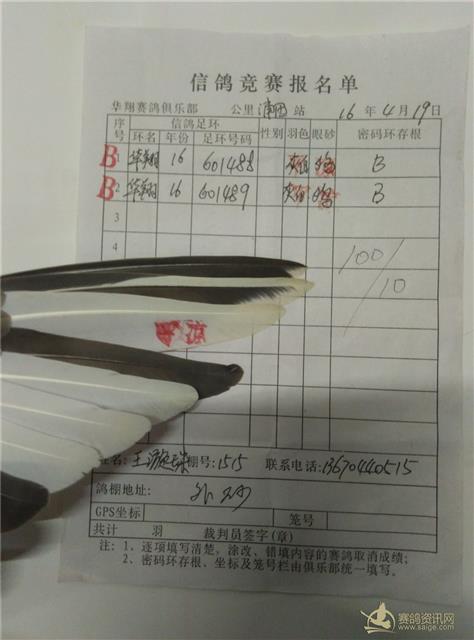 信鸽竞赛报名单
华翔赛鸽俱乐部 公里 站 16年4月19日
序号 信鸽足环 性别 羽色 眼砂 密码环存根
环名 年份 足环号码
B 1 华翔 16 601488 灰 B
B 2 华翔 16 601489 灰 B
3
4
100/10
姓名: 王 棚号:1515 联系电话:13670440515
鸽棚地址:
GPS坐标 笼号
共计 羽 裁判员签字(章)
注: 1、逐项填写清楚, 涂改、错填内容的赛鸽取消成绩;
2、密码环存根、坐标及笼号栏由俱乐部统一填写。
赛鸽资讯网
www.saige.com